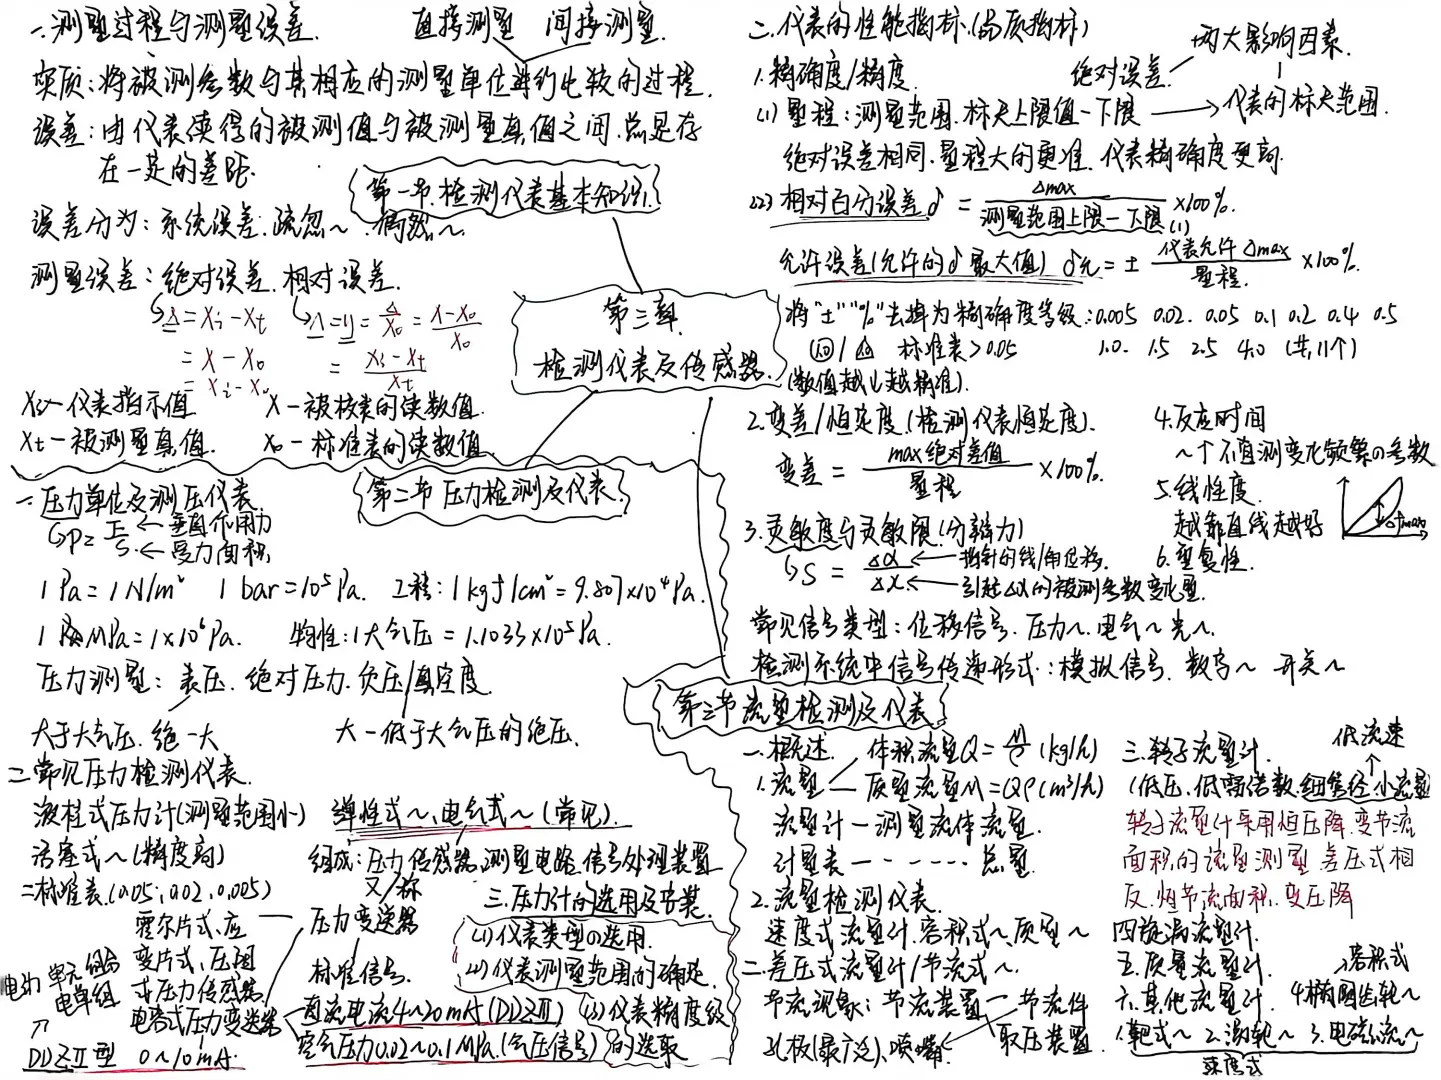 第三章
检测仪表及传感器
第一节.检测仪表基本知识.
一.测量过程与测量误差.
直接测量 间接测量.
实质:将被测参数与其相应的测量单位进行比较的过程.
误差:由仪表读得的被测值与被测量真值之间.总是存
在一定的差距.
误差分为:系统误差.疏忽~.偶然~.
测量误差:绝对误差.相对误差.
Δ=Xi-Xt
=X-X0
=Xi-X0
Λ=y=Δ/X0=(X-X0)/X0
=(Xi-Xt)/Xt
Xi-仪表指示值 X-被校表的读数值.
Xt-被测量真值. X0-标准表的读数值.
二.仪表的性能指标.(品质指标)
1.精确度/精度.
两大影响因素.
绝对误差
仪表的标尺范围.
(1)量程:测量范围.标尺上限值-下限
绝对误差相同.量程大的更准.仪表精确度更高.
(2)相对百分误差δ=Δmax/测量范围上限-下限(1)×100%.
允许误差(允许的δ最大值) δ允=±仪表允许Δmax/量程×100%.
将"±""%"去掉为精确度等级:0.005 0.02. 0.05 0.1 0.2 0.4 0.5
1.0. 1.5 2.5 4.0 (共11个)
标准表>0.05
(数值越小越精准).
2.变差/恒定度.(检测仪表恒定度).
变差=max绝对差值/量程×100%.
3.灵敏度与灵敏限.(分辨力)
S=Δα/Δx
指针的线/角位移.
引起Δα的被测参数变化量.
4.反应时间
~个不直测变化频繁の参数
5.线性度.
越靠直线越好
Δfmax
6.重复性.
常见信号类型:位移信号.压力~.电气~光~.
检测系统中信号传递形式:模拟信号.数字~ 开关~
第二节 压力检测及仪表.
一.压力单位及测压仪表.
P=F/S
F←垂直作用力
S.←受力面积.
1Pa=1N/m² 1bar=10⁵Pa. 工程:1kgf/cm²=9.807×10⁴Pa.
1MPa=1×10⁶Pa. 物性:1大气压=1.1033×10⁵Pa.
压力测量:表压.绝对压力.负压/真空度.
大于大气压.绝-大
大-低于大气压的绝压.
二.常见压力检测仪表.
液柱式压力计(测量范围小) 弹性式~.电气式~(常见).
活塞式~(精度高)
=标准表.(0.05;0.02,0.005)
组成:压力传感器.测量电路.信号处理装置
又/称
压力变送器
标准信号.
直流电流4~20mA(DDZⅢ)
空气压力0.02~0.1MPa.(气压信号)
霍尔片式、应
变片式、压阻
式压力传感器
电容式压力变送器
0~10mA.
电动 单元 组合
电单组
DDZⅡ型
三.压力计的选用及安装.
(1)仪表类型の选用.
(2)仪表测量范围的确定
(3)仪表精度级
的选取
第三节流量检测及仪表.
一.概述.
1.流量
体积流量Q=M/ρ(kg/h)
质量流量M=Qρ(m³/h)
流量计-测量流体流量.
计量表-·····总量.
2.流量检测仪表.
速度式流量计.容积式~.质量~
二.差压式流量计/节流式~.
节流现象:节流装置-节流件
取压装置.
孔板(最广泛)、喷嘴
三.转子流量计.
低流速
(低压.低雷诺数.细管径小流量
转子流量计采用恒压降.变节流
面积的流量测量.差压式相
反.恒节流面积.变压降
四.旋涡流量计.
五.质量流量计.
六.其他流量计.
容积式
4.椭圆齿轮~
1.靶式~ 2.涡轮~ 3.电磁流~
速度式